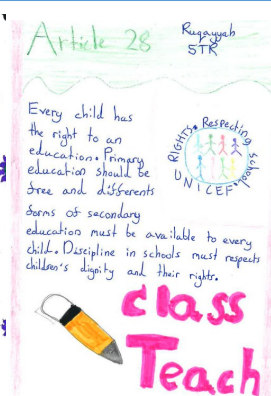 Article 28
Ruqayyah
5TR
Every child has
the right to an
education. Primary
education should be
free and differents
forms of secondary
education must be available to every
child. Discipline in schools must respects
children's dignity and their rights.
RIGHTS Respecting School.
UNICEF
class
Teach